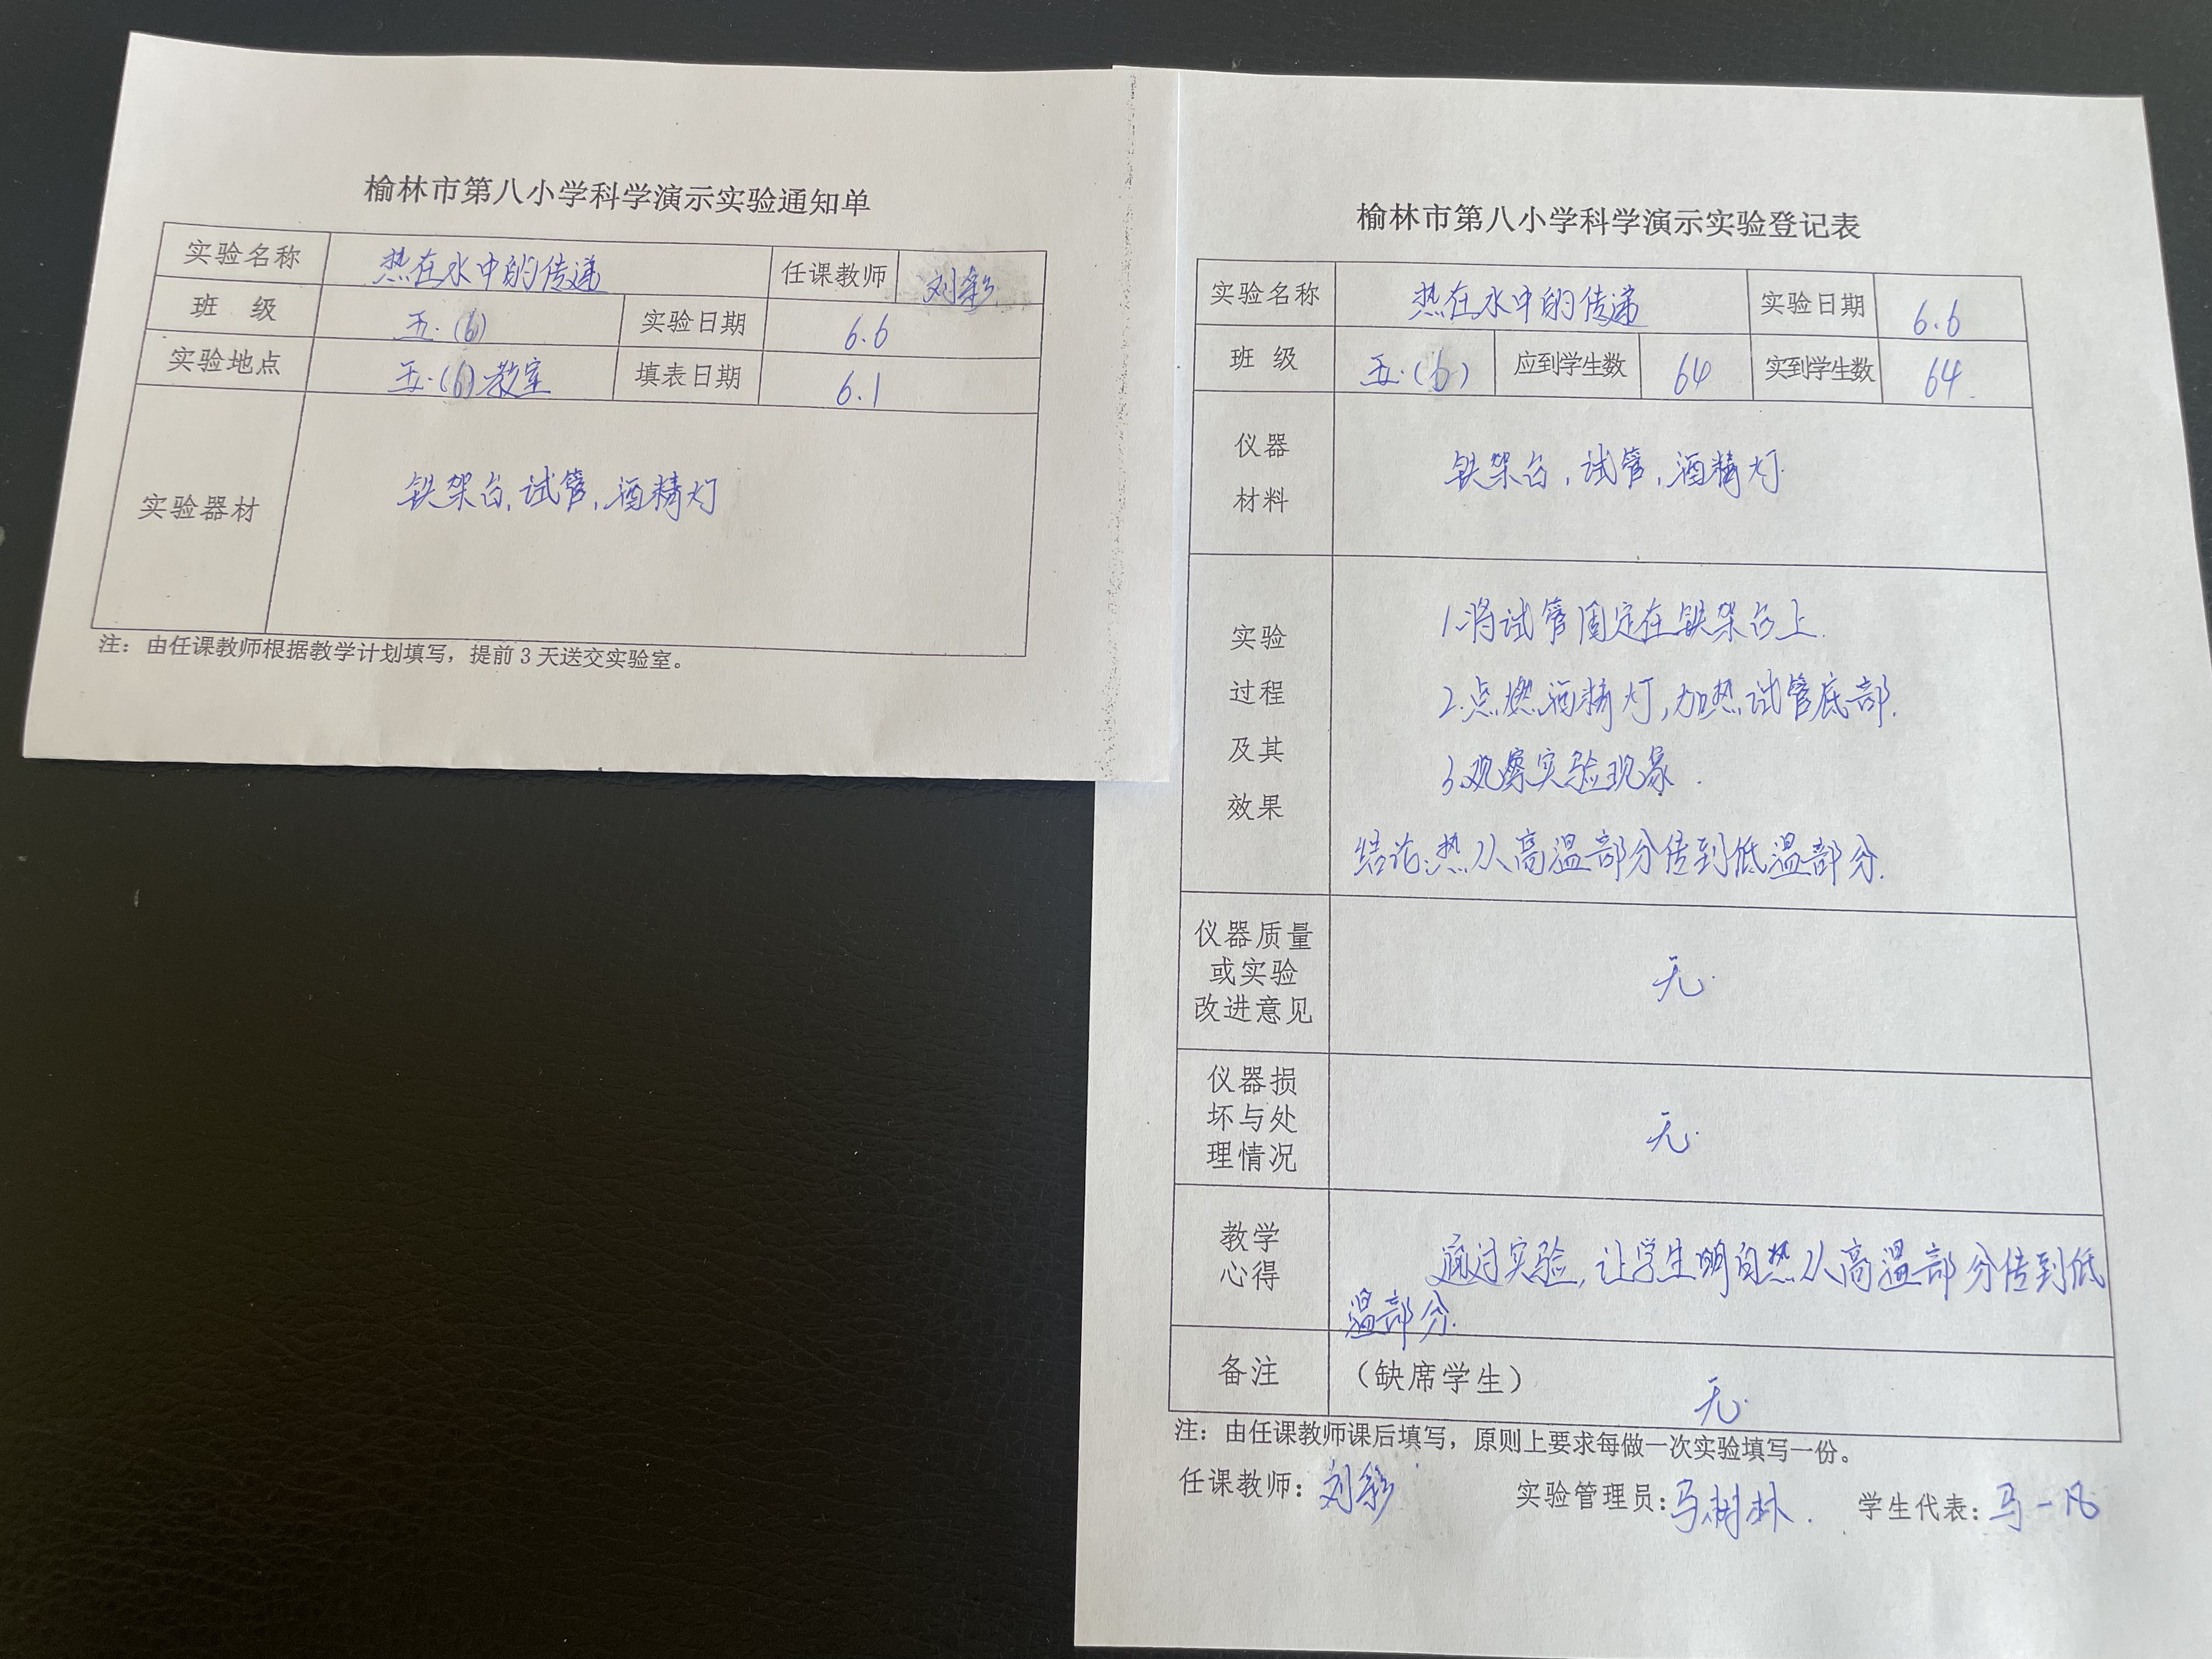 榆林市第八小学科学演示实验通知单
实验名称 热在水中的传递 任课教师 刘彩
班 级 五.(6) 实验日期 6.6
实验地点 五.(6)教室 填表日期 6.1
实验器材 铁架台,试管,酒精灯
注：由任课教师根据教学计划填写，提前3天送交实验室。
榆林市第八小学科学演示实验登记表
实验名称 热在水中的传递 实验日期 6.6
班 级 五.(6) 应到学生数 64 实到学生数 64.
仪器
材料
铁架台,试管,酒精灯.
实验
过程
及其
效果
1.将试管固定在铁架台上.
2.点燃酒精灯,加热试管底部.
3.观察实验现象.
结论:热从高温部分传到低温部分.
仪器质量
或实验
改进意见
无.
仪器损
坏与处
理情况
无.
教学
心得
通过实验,让学生明白热从高温部分传到低
温部分.
备注 （缺席学生） 无.
注：由任课教师课后填写，原则上要求每做一次实验填写一份。
任课教师：刘彩 实验管理员：马树林. 学生代表：马一凡